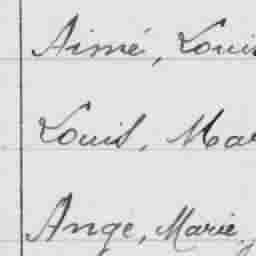 Aimé, Louis
Louis, Mar
Ange, Marie,